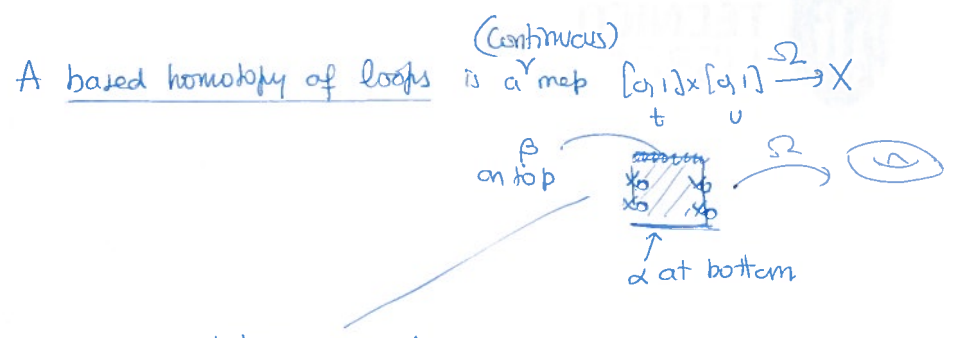 (Continuous)
A based homotopy of loops is a map [0,1]x[0,1] Ω→ X
t u
β on top
x₀ x₀
x₀ x₀
Ω
α at bottom